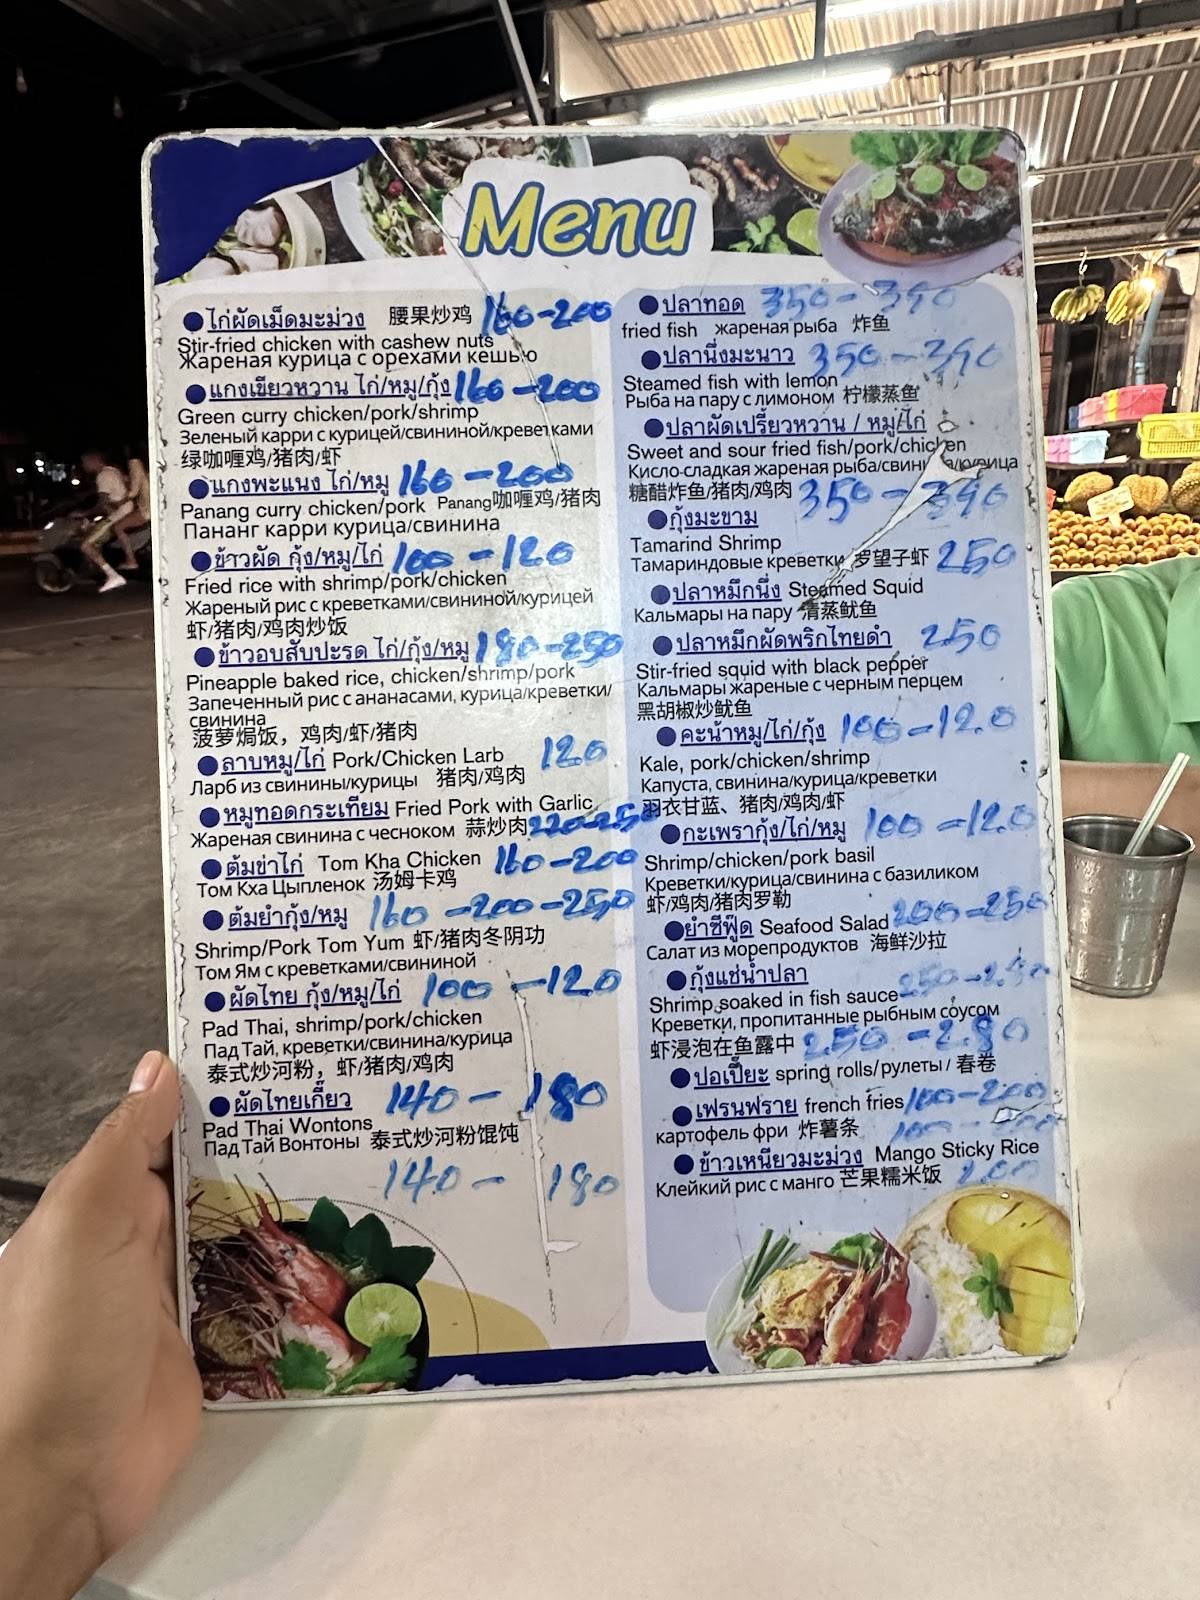 Menu
ไก่ผัดเม็ดมะม่วง 腰果炒鸡 160-200
Stir-fried chicken with cashew nuts
Жареная курица с орехами кешью
แกงเขียวหวาน ไก่/หมู/กุ้ง 160-200
Green curry chicken/pork/shrimp
Зеленый карри с курицей/свининой/креветками
绿咖喱鸡/猪肉/虾
แกงพะแนง ไก่/หมู 160-200
Panang curry chicken/pork Panang咖喱鸡/猪肉
Пананг карри курица/свинина
ข้าวผัด กุ้ง/หมู/ไก่ 100-120
Fried rice with shrimp/pork/chicken
Жареный рис с креветками/свининой/курицей
虾/猪肉/鸡肉炒饭
ข้าวอบสับปะรด ไก่/กุ้ง/หมู 180-250
Pineapple baked rice, chicken/shrimp/pork
Запеченный рис с ананасами, курица/креветки/
свинина
菠萝焗饭，鸡肉/虾/猪肉
ลาบหมู/ไก่ Pork/Chicken Larb 120
Ларб из свинины/курицы 猪肉/鸡肉
หมูทอดกระเทียม Fried Pork with Garlic
Жареная свинина с чесноком 蒜炒肉 220-250
ต้มข่าไก่ Tom Kha Chicken 160-200
Том Кха Цыпленок 汤姆卡鸡
ต้มยำกุ้ง/หมู 160-200-250
Shrimp/Pork Tom Yum 虾/猪肉冬阴功
Том Ям с креветками/свининой
ผัดไทย กุ้ง/หมู/ไก่ 100-120
Pad Thai, shrimp/pork/chicken
Пад Тай, креветки/свинина/курица
泰式炒河粉，虾/猪肉/鸡肉
ผัดไทยเกี๊ยว 140-180
Pad Thai Wontons
Пад Тай Вонтоны 泰式炒河粉馄饨
140-180
ปลาทอด 350-390
fried fish жареная рыба 炸鱼
ปลานึ่งมะนาว 350-390
Steamed fish with lemon
Рыба на пару с лимоном 柠檬蒸鱼
ปลาผัดเปรี้ยวหวาน / หมู/ไก่
Sweet and sour fried fish/pork/chicken
Кисло-сладкая жареная рыба/свинина/курица
糖醋炸鱼/猪肉/鸡肉 350-390
กุ้งมะขาม
Tamarind Shrimp
Тамариндовые креветки 罗望子虾 250
ปลาหมึกนึ่ง Steamed Squid
Кальмары на пару 清蒸鱿鱼
ปลาหมึกผัดพริกไทยดำ 250
Stir-fried squid with black pepper
Кальмары жареные с черным перцем
黑胡椒炒鱿鱼
คะน้าหมู/ไก่/กุ้ง 100-120
Kale, pork/chicken/shrimp
Капуста, свинина/курица/креветки
羽衣甘蓝、猪肉/鸡肉/虾
กะเพรากุ้ง/ไก่/หมู 100-120
Shrimp/chicken/pork basil
Креветки/курица/свинина с базиликом
虾/鸡肉/猪肉罗勒
ยำซีฟู๊ด Seafood Salad 200-250
Салат из морепродуктов 海鲜沙拉
กุ้งแช่น้ำปลา 250-
Shrimp soaked in fish sauce
Креветки, пропитанные рыбным соусом
虾浸泡在鱼露中 250-280
ปอเปี๊ยะ spring rolls/рулеты / 春卷
เฟรนฟราย french fries 100-200
картофель фри 炸薯条
ข้าวเหนียวมะม่วง Mango Sticky Rice
Клейкий рис с манго 芒果糯米饭 200